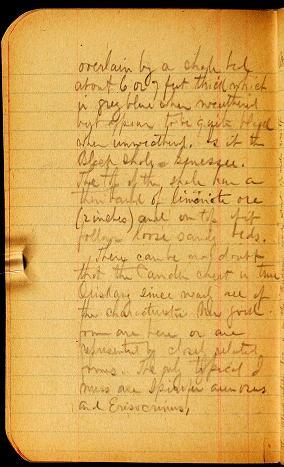 overlain by a shale bed
about 6 or 7 feet thick which
is grey blue when weathered
but appear to be quite
when unweathered. Is it the
shale - Genessee.
The top of the shale has a
thin band of limonite ore
(2 inches) and on top of it
follow loose sandy beds.
There can be no doubt
that the Candle chert is true
Oriskany since nearly all of
the characteristic New York
forms are here or are
represented by closely related
forms. The only typical
I miss are Spirifer arenosus
and Edriocrinus.